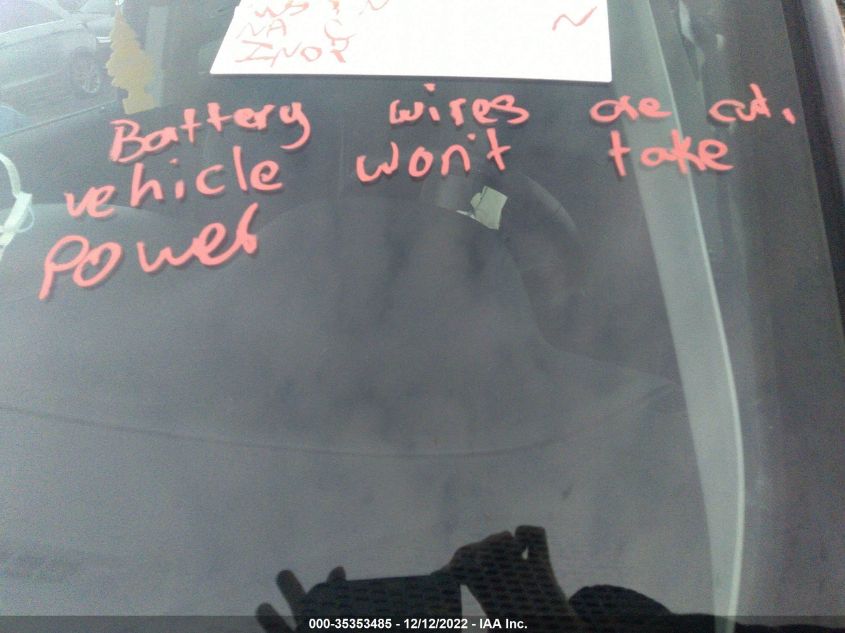 NA C
INOP
N
Battery wires are cut,
vehicle won't take
Power
000-35353485 - 12/12/2022 - IAA Inc.